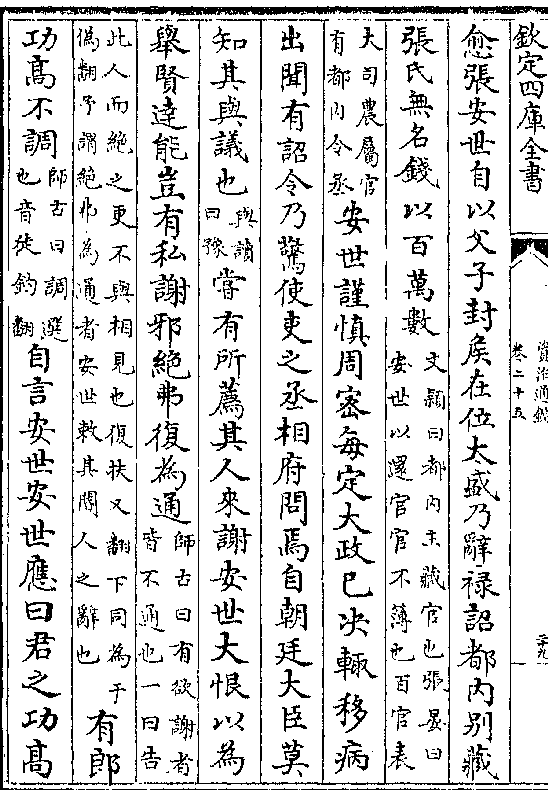 欽定四庫全書
資治通鑑
卷二十五
二十九
愈張安世自以父子封侯在位太盛乃辭禄詔都内别藏
張氏無名錢以百萬數文頴曰都内主藏官也張晏曰安世以還官官不薄也百官表
大司農屬官有都内令丞安世謹慎周宻每定大政已决輙移病
出聞有詔令乃驚使吏之丞相府問焉自朝廷大臣莫
知其與議也與讀曰豫嘗有所薦其人來謝安世大恨以為
舉賢達能豈有私謝邪絶弗復為通師古曰有欲謝者皆不通也一曰告
此人而絶之更不與相見也復扶又翻下同為于偽翻予謂絶弗為通者安世敕其閽人之辭也有郎
功髙不調師古曰調選也音徒釣翻自言安世安世應曰君之功髙